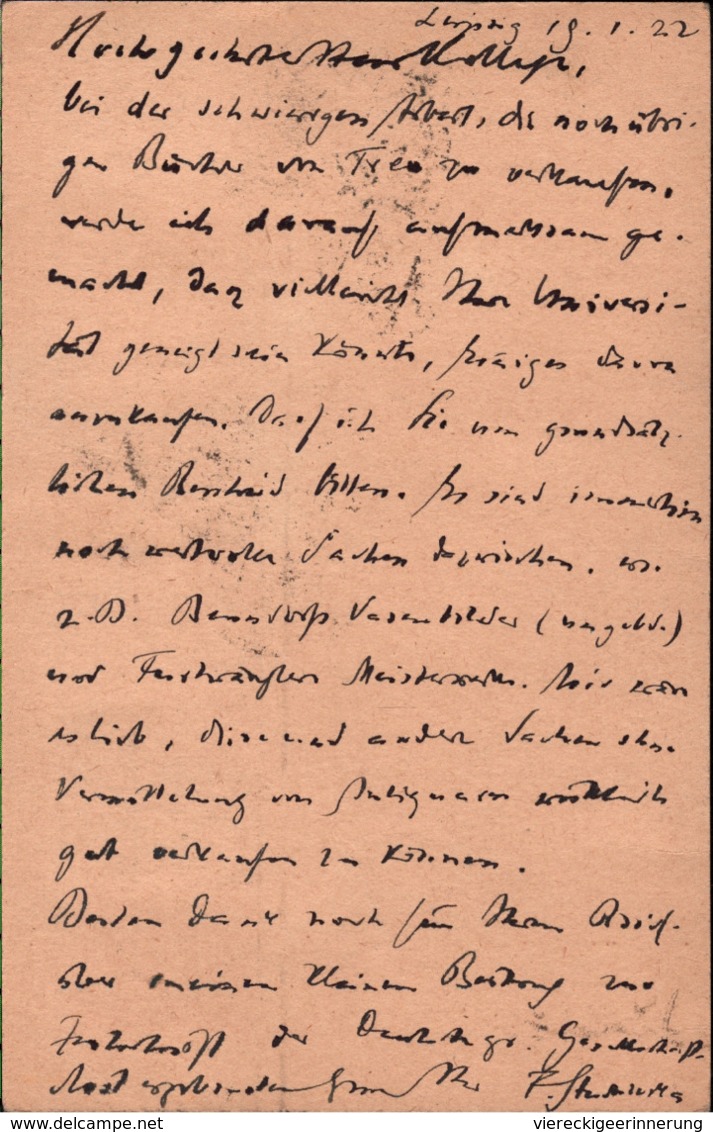 Leipzig 19.1.22
Hochgeehrter Herr Kollege,
bei der schwierigen Arbeit, die noch übri-
gen Bücher von Treu zu verkaufen,
werde ich darauf aufmerksam ge-
macht, daß vielleicht Ihre Universi-
tät geneigt sein könnte, einiges davon
anzukaufen. Darf ich Sie um grundsätz-
lichen Bescheid bitten. Es sind immerhin
noch wertvolle Sachen dazwischen, wie
z.B. Benndorfs Vasenbilder (ungebd.)
und Furtwänglers Meisterwerke. Mir wäre
es lieb, diese und andere Sachen ohne
Vermittelung von Antiquaren wirklich
gut verkaufen zu können.
Besten Dank noch für Ihren Brief
über meinen kleinen Beitrag zur
Festschrift der Gesellschaft
Ihr F. Studniczka
viereckigeerinnerung